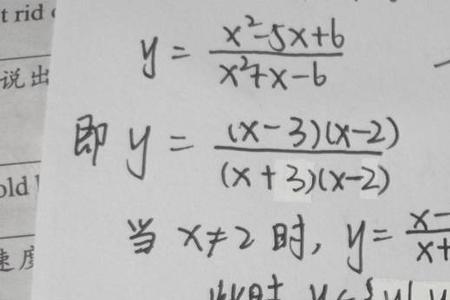 t rid
说出
old
速度
y = (x²-5x+6)/(x²+x-6)
即 y = (x-3)(x-2)/(x+3)(x-2)
当 x≠2 时, y =